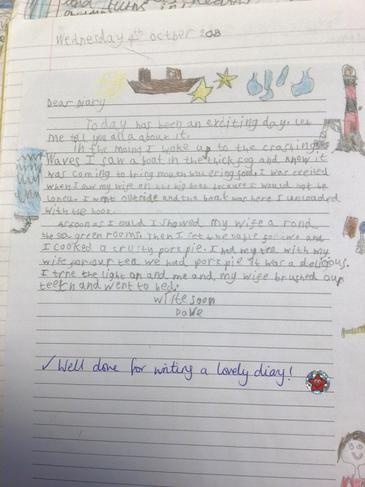 Wednesday 4th octber 2018
Dear Diary
Today has been an exciting day. Let
me tell you all about it.
In the moning I woke up to the crashing
waves I saw a boat in the thick fog and knew it
was coming to bring mouth watering food. I was
when I saw my wife on the big boat because I would not be
lonely. I went outside and the boat was here I unloaded
with the hook.
As soon as I could I showed my wife a rond
the sea green rooms. Then I set the table for and
I cooked a crusty pork pie. I had my tea with my
wife for our tea we had pork pie it was a delicious.
I trne the light on and me and my wife brushed our
teeth and went to bed.
write soon
Dave
✓ Well done for writing a lovely diary!